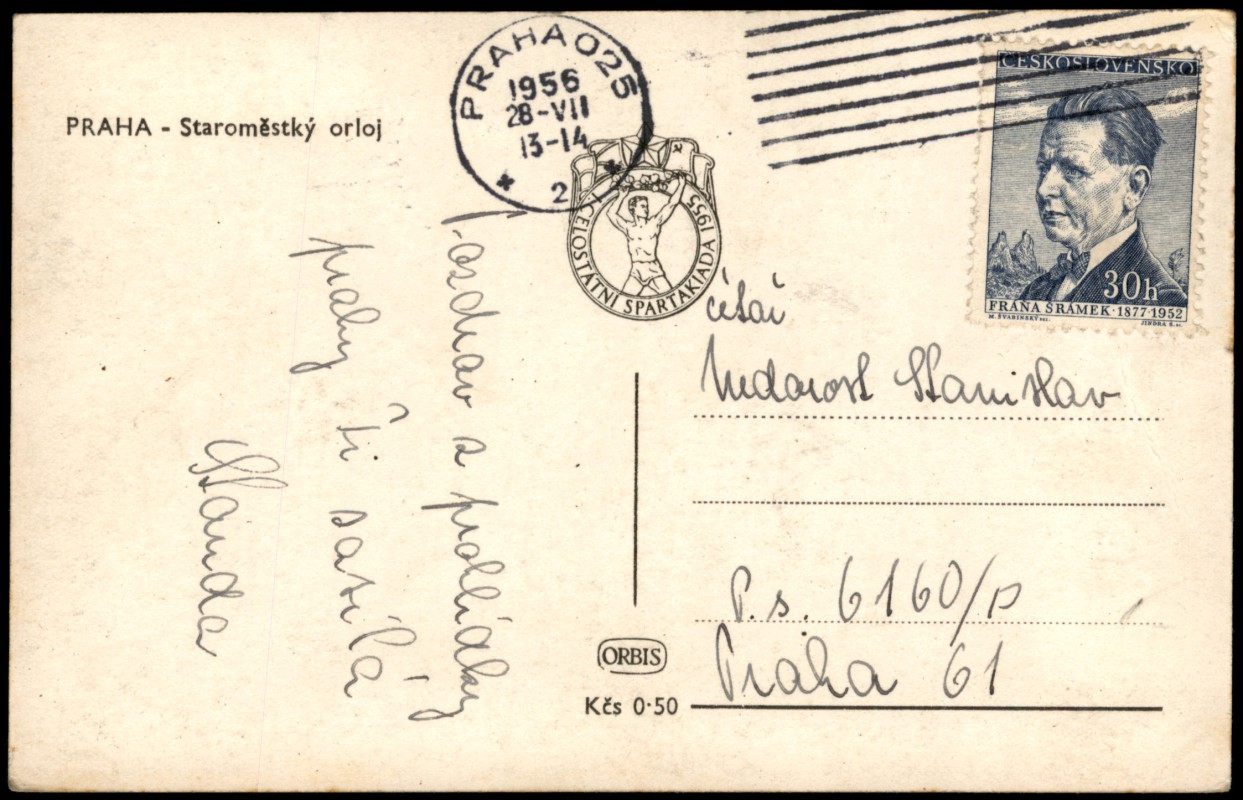 PRAHA - Staroměstký orloj
PRAHA 025
1956
28-VII
13-14
2
I. CELOSTÁTNÍ SPARTAKIÁDA 1955
ČESKOSLOVENSKO
30h
FRÁŇA ŠRÁMEK · 1877-1952
M. ŠVABINSKÝ del.
JINDRA S. sc.
Pozdrav z prohlídky
prahy Ti zasílá
Standa
Nedorost Stanislav
P.s. 6160/p
Praha 61
ORBIS
Kčs 0·50